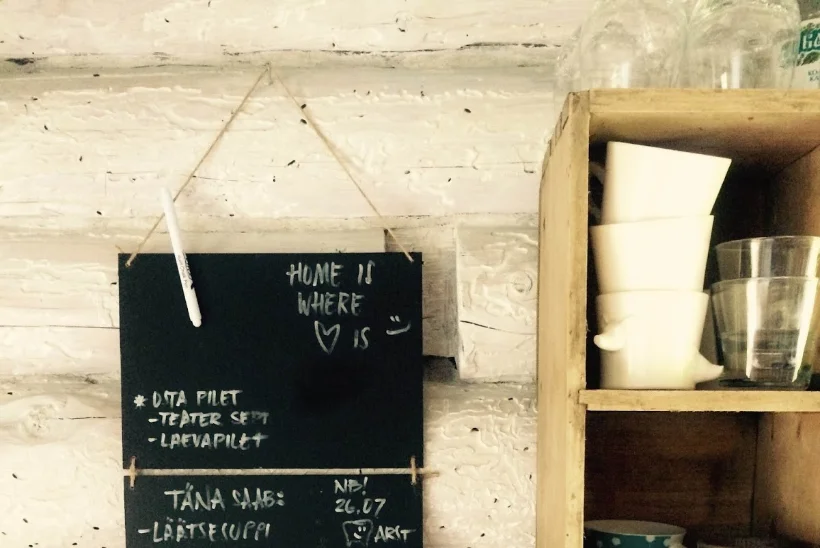 HOME IS
WHERE
♡ IS
* OSTA PILET
- TEATER SEPT
- LAEVAPILET
TÄNA SAAB:
- LÄÄTSESUPPI
NB!
26.07
ARST